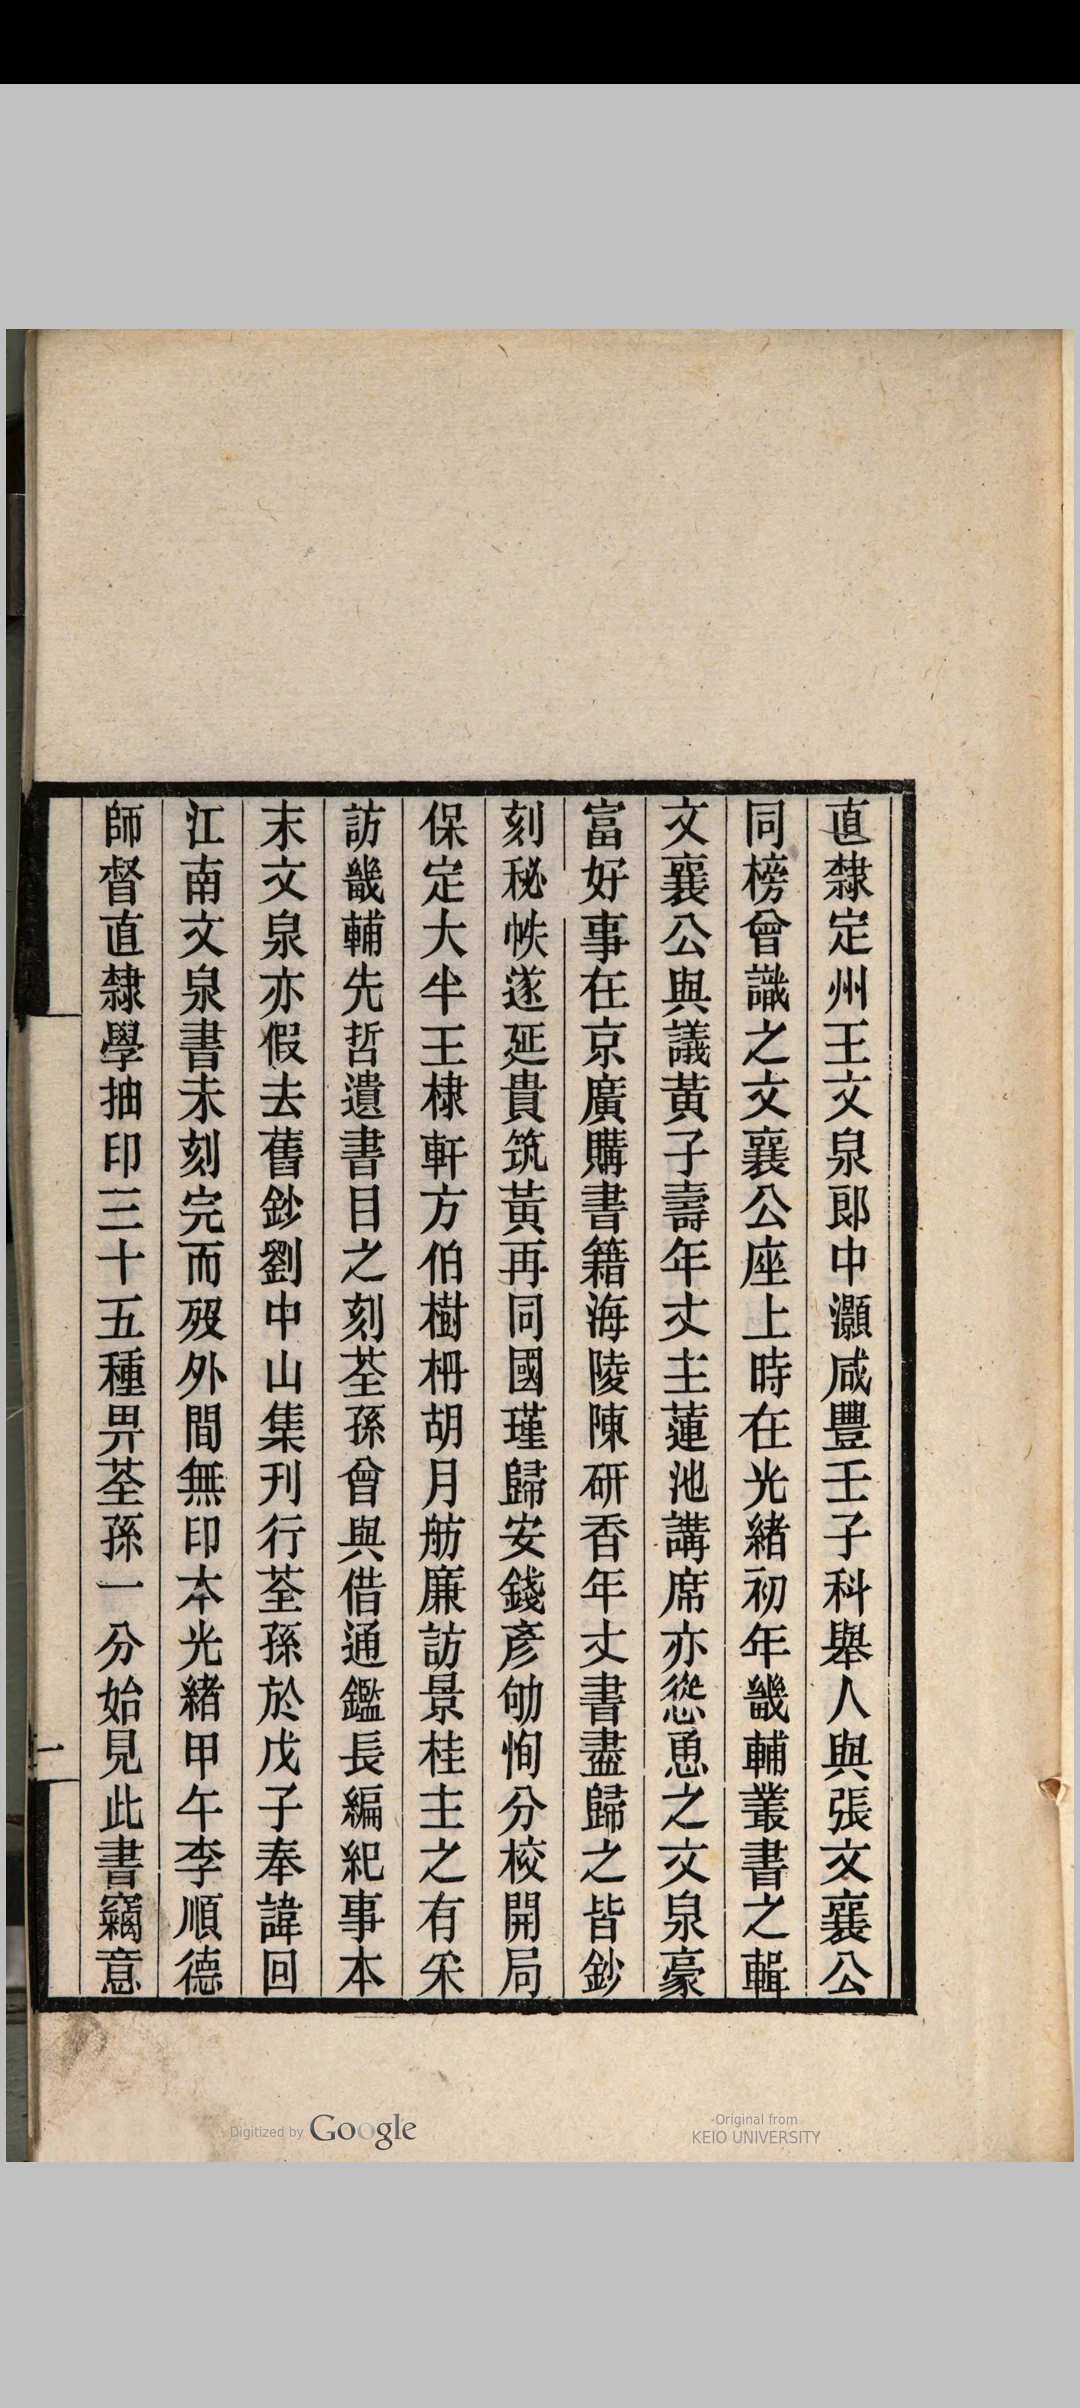 直隸定州王文泉郎中灝咸豐壬子科舉人與張文襄公
同榜曾識之文襄公座上時在光緒初年畿輔叢書之輯
文襄公與議黃子壽年丈主蓮池講席亦慫恿之文泉豪
富好事在京廣購書籍海陵陳研香年丈書盡歸之皆鈔
刻秘帙遂延貴筑黃再同國瑾歸安錢彥劬恂分校開局
保定大半王棣軒方伯樹枏胡月舫廉訪景桂主之有采
訪畿輔先哲遺書目之刻荃孫曾與借通鑑長編紀事本
末文泉亦假去舊鈔劉中山集刊行荃孫於戊子奉諱回
江南文泉書未刻完而歿外間無印本光緒甲午李順德
師督直隸學抽印三十五種畀荃孫一分始見此書竊意
一
Digitized by Google
Original from
KEIO UNIVERSITY